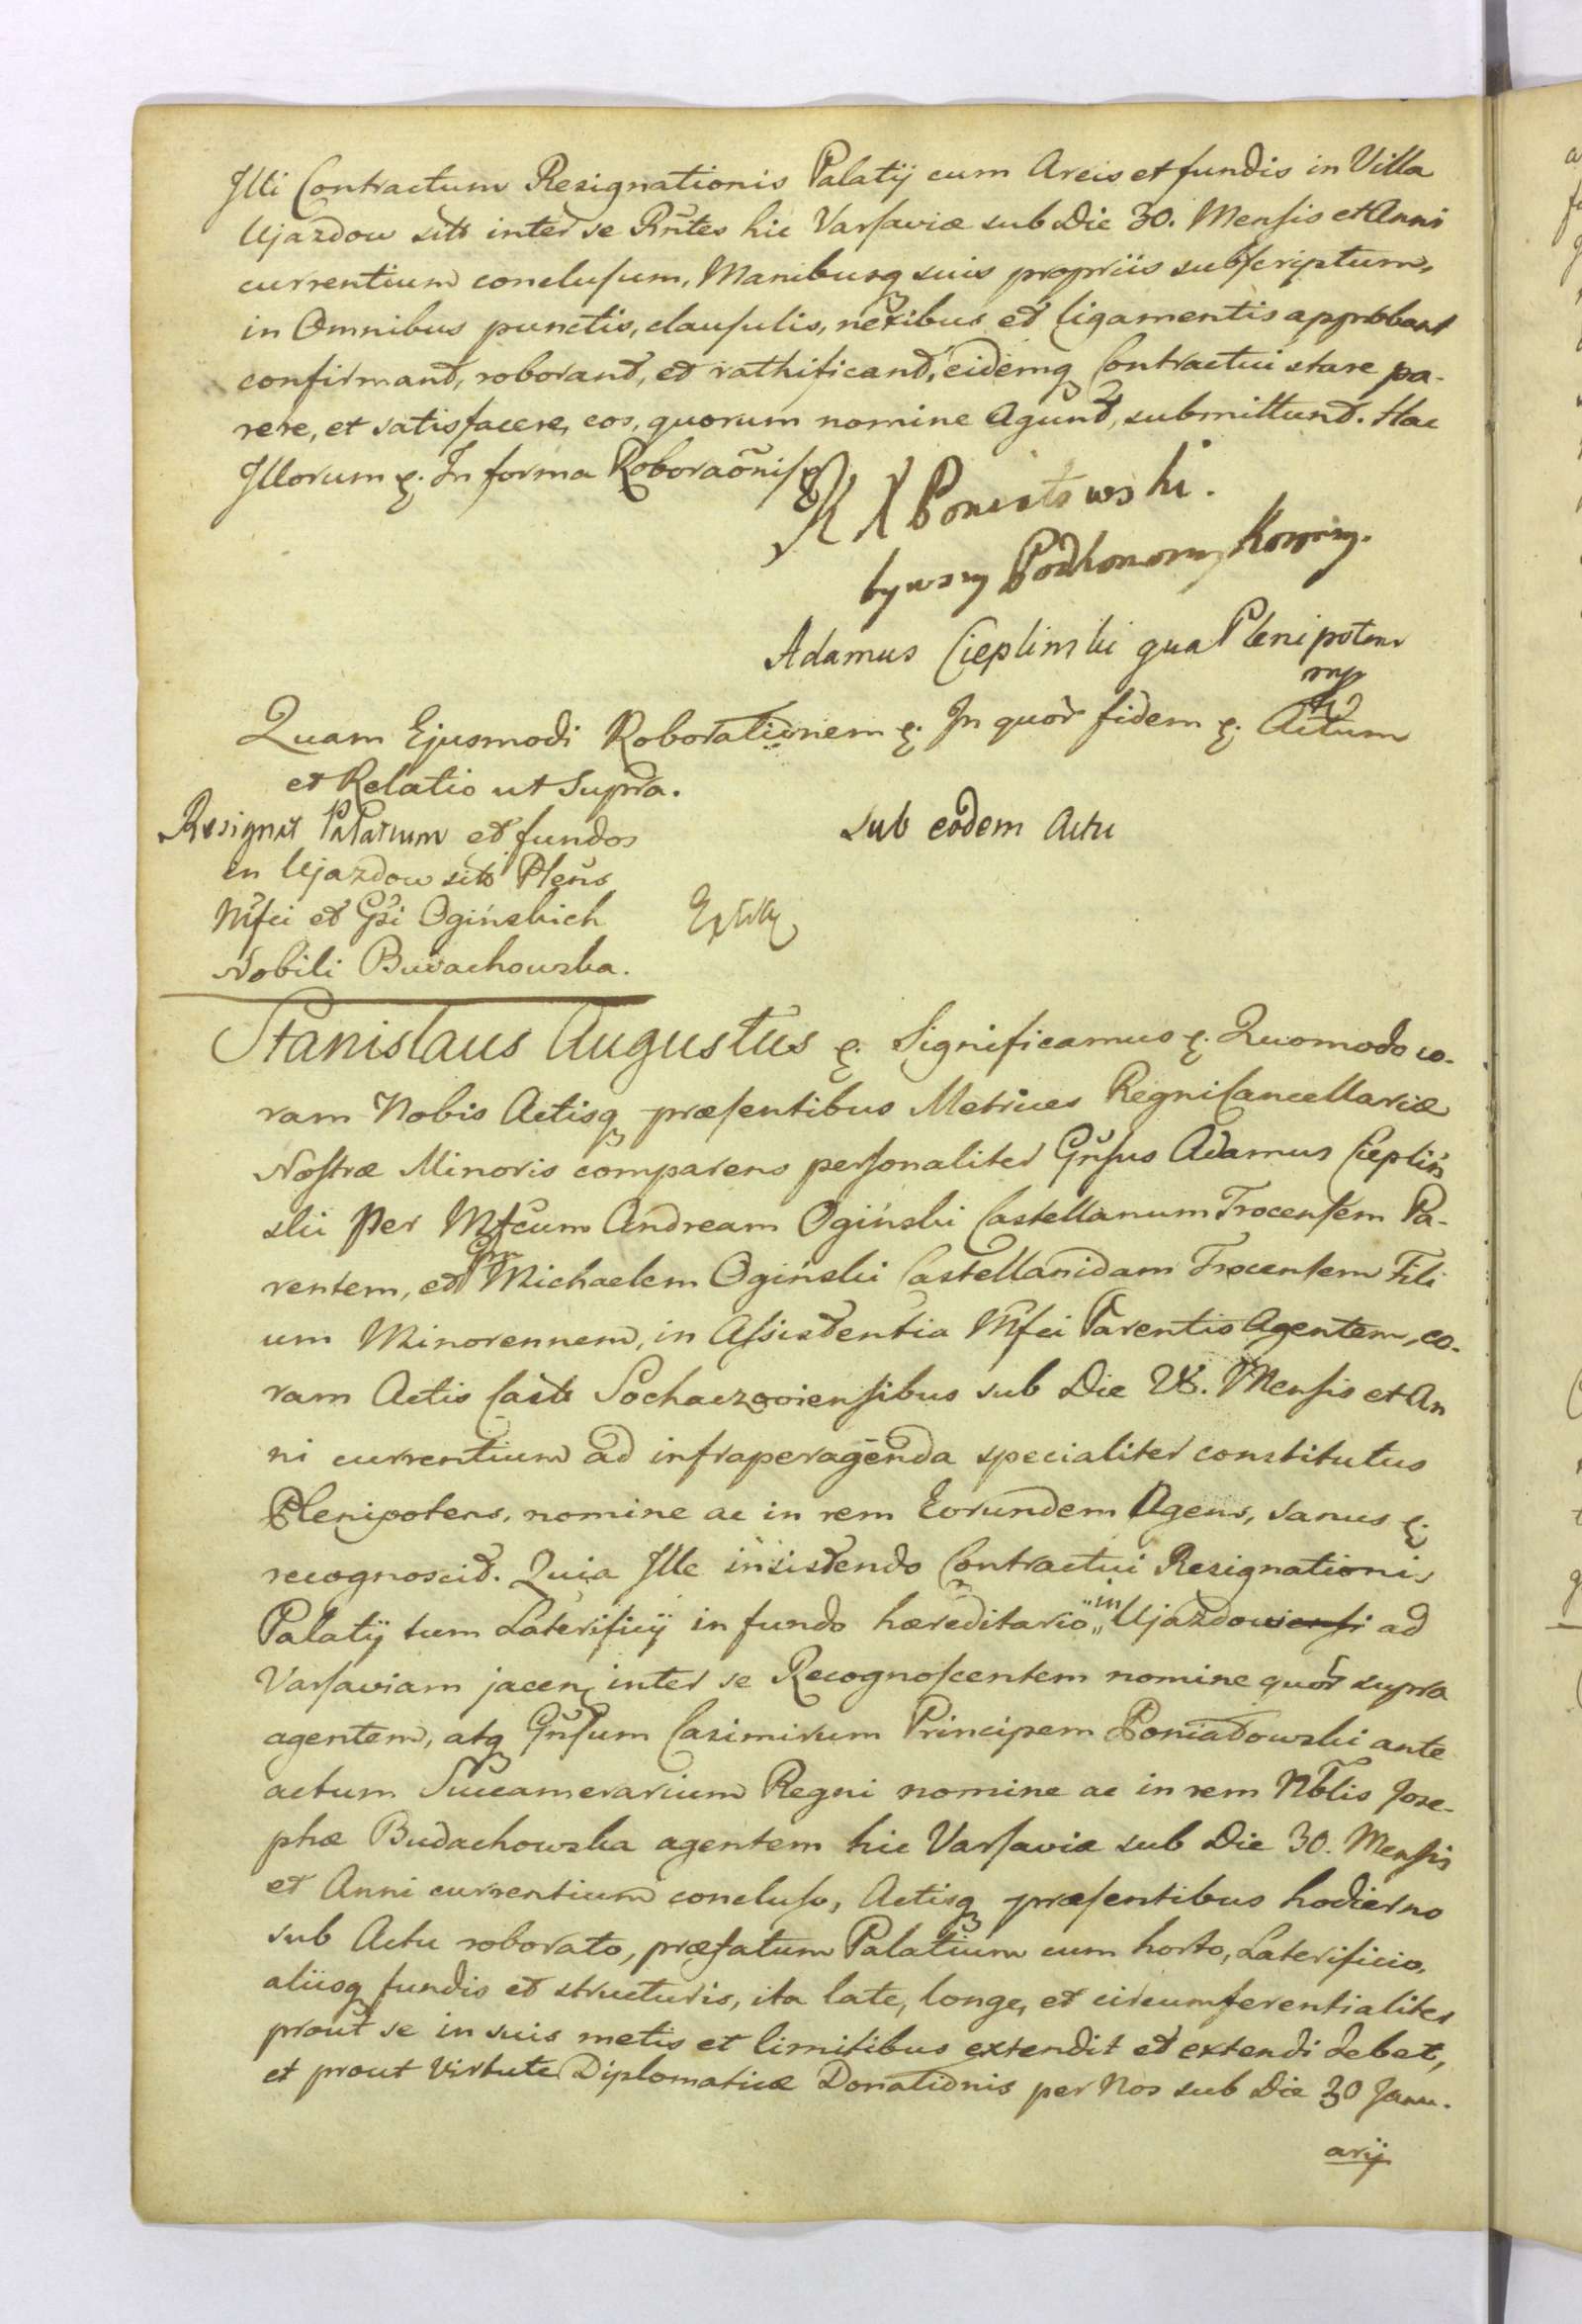 Illi Contractum Resignationis Palatij cum Areis et fundis in Villa
Ujazdow sits inter se Rntes hic Varsaviæ sub Die 30. Mensis et Anni
currentium conclusum, Manibusq suis propriis subscriptum,
in Omnibus punctis, clausulis, nexibus et ligamentis approbant
confirmant, roborant, et rathificant, eidemq Contractui stare pa-
rere, et satisfacere, eos, quorum nomine Agunt, submittunt. Hac
Illorum &. In forma Roboraõnis &
K X Poniatowski.
bywszy Podkomorzy Koronny.
Adamus Cieplinski qua Plenipotens
mp
Quam Ejusmodi Roborationem &. In quor fidem &. Actum
et Relatio ut Supra.
Resignat Palatium et fundos
in Ujazdow sits Plens
Mfci et Gsi Ogińskich
Nobili Budachowska.
sub eodem Actu
Stanislaus Augustus &. Significamus &. Quomodo co-
ram Nobis Actisq præsentibus Metrices Regni Cancellariæ
Nostræ Minoris comparens personaliter Gnsus Adamus Cepliń
ski per Mfcum Andream Ogiński Castellanum Trocensem Pa-
rentem, et Gm Michaelem Ogiński Castellanidam Trocensem Fili
um Minorennem, in Assistentia Mfci Parentis Agentem, co-
ram Actis Casts Sochaczoviensibus sub Die 28. Mensis et An
ni currentium ad infraperagenda specialiter constitutus
Plenipotens, nomine ac in rem Eorundem Agens, sanus &.
recognoscit. Quia Ille insistendo Contractui Resignationis
Palatij tum Laterificij in fundo hæreditario in Ujazdowiensi ad
Varsaviam jacen, inter se Recognoscentem nomine quor supra
agentem, atq Gnsum Casimirum Principem Poniatowski ante
actum Succamerarium Regni nomine ac in rem Nblis Jose-
phæ Budachowska agentem hic Varsaviæ sub Die 30. Mensis
et Anni currentium concluso, Actisq præsentibus hodierno
sub Actu roborato, præfatum Palatium cum horto, Laterificio,
aliisq fundis et structuris, ita late, longe, et circumferentialiter
prout se in suis metis et limitibus extendit et extendi debet,
et prout virtute Diplomaticæ Donationis per Nos sub Die 30 Janu-
arij